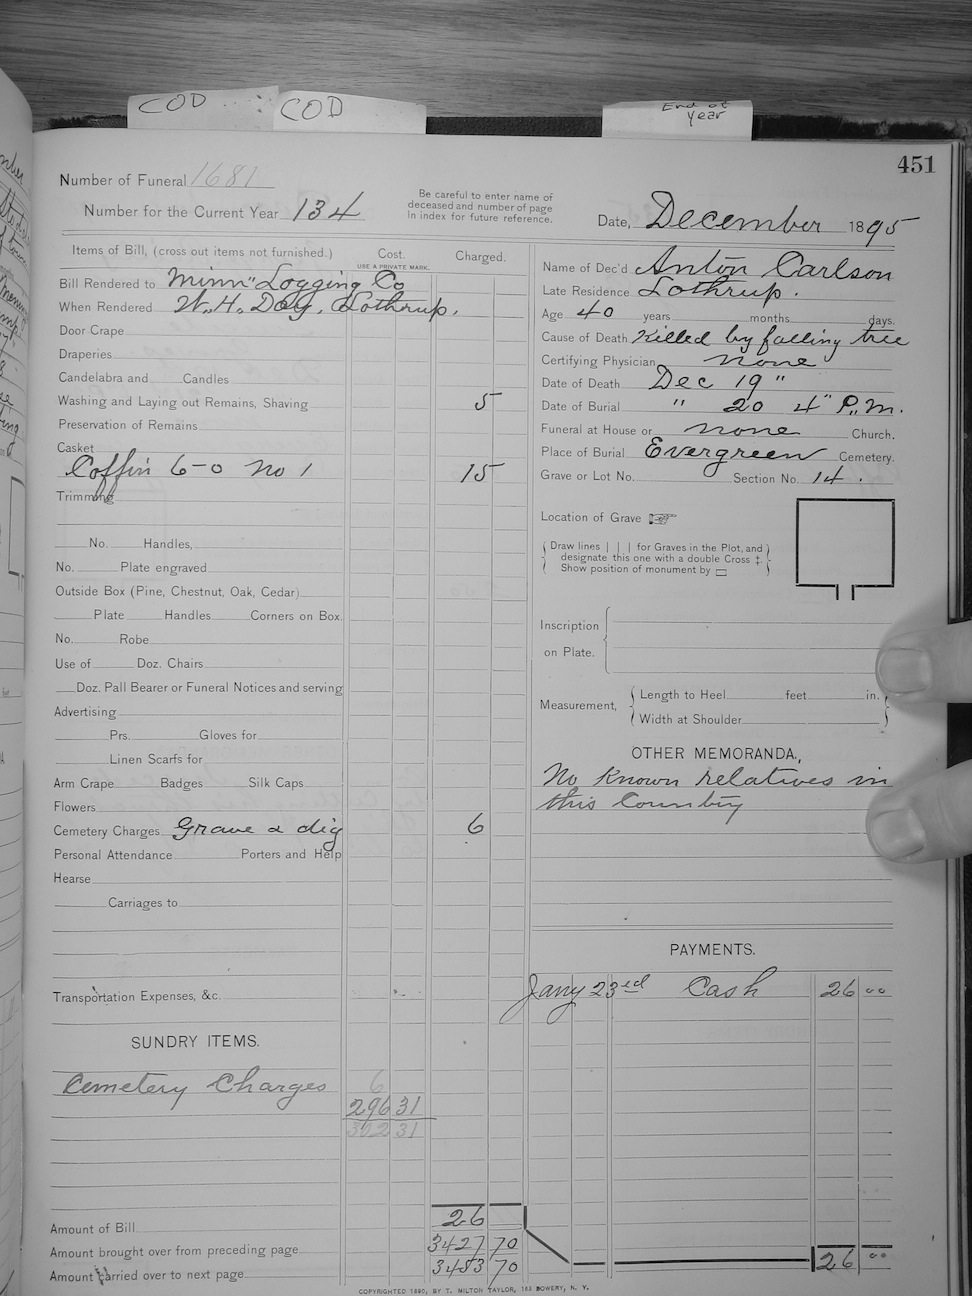 COD
COD
End of
year
451
Number of Funeral 1681
Number for the Current Year 134
Be careful to enter name of
deceased and number of page
in index for future reference.
Date, December 1895
Items of Bill, (cross out items not furnished.) Cost. Charged.
USE A PRIVATE MARK.
Bill Rendered to Minn" Logging Co
When Rendered W. H. Day, Lothrup.
Door Crape
Draperies
Candelabra and Candles
Washing and Laying out Remains, Shaving 5
Preservation of Remains
Casket
Coffin 6-0 No 1 15
Trimming
No. Handles,
No. Plate engraved
Outside Box (Pine, Chestnut, Oak, Cedar)
Plate Handles Corners on Box
No. Robe
Use of Doz. Chairs
Doz. Pall Bearer or Funeral Notices and serving
Advertising
Prs. Gloves for
Linen Scarfs for
Arm Crape Badges Silk Caps
Flowers
Cemetery Charges Grave & dig 6
Personal Attendance Porters and Help
Hearse
Carriages to
Transportation Expenses, &c.
SUNDRY ITEMS.
Cemetery Charges 6
296 31
302 31
Amount of Bill 26
Amount brought over from preceding page 3427 70
Amount carried over to next page 3453 70
Name of Dec'd Anton Carlson
Late Residence Lothrup.
Age 40 years months days.
Cause of Death Killed by falling tree
Certifying Physician none
Date of Death Dec 19"
Date of Burial " 20 4" P.M.
Funeral at House or none Church.
Place of Burial Evergreen Cemetery.
Grave or Lot No. Section No. 14.
Location of Grave
Draw lines | | | for Graves in the Plot, and
designate this one with a double Cross ‡.
Show position of monument by ▭
Inscription
on Plate.
Measurement, Length to Heel feet in.
Width at Shoulder
OTHER MEMORANDA,
No Known relatives in
this Country
PAYMENTS.
Jany 23rd Cash 26 00
26 00
COPYRIGHTED 1890, BY T. MILTON TAYLOR, 163 BOWERY, N. Y.